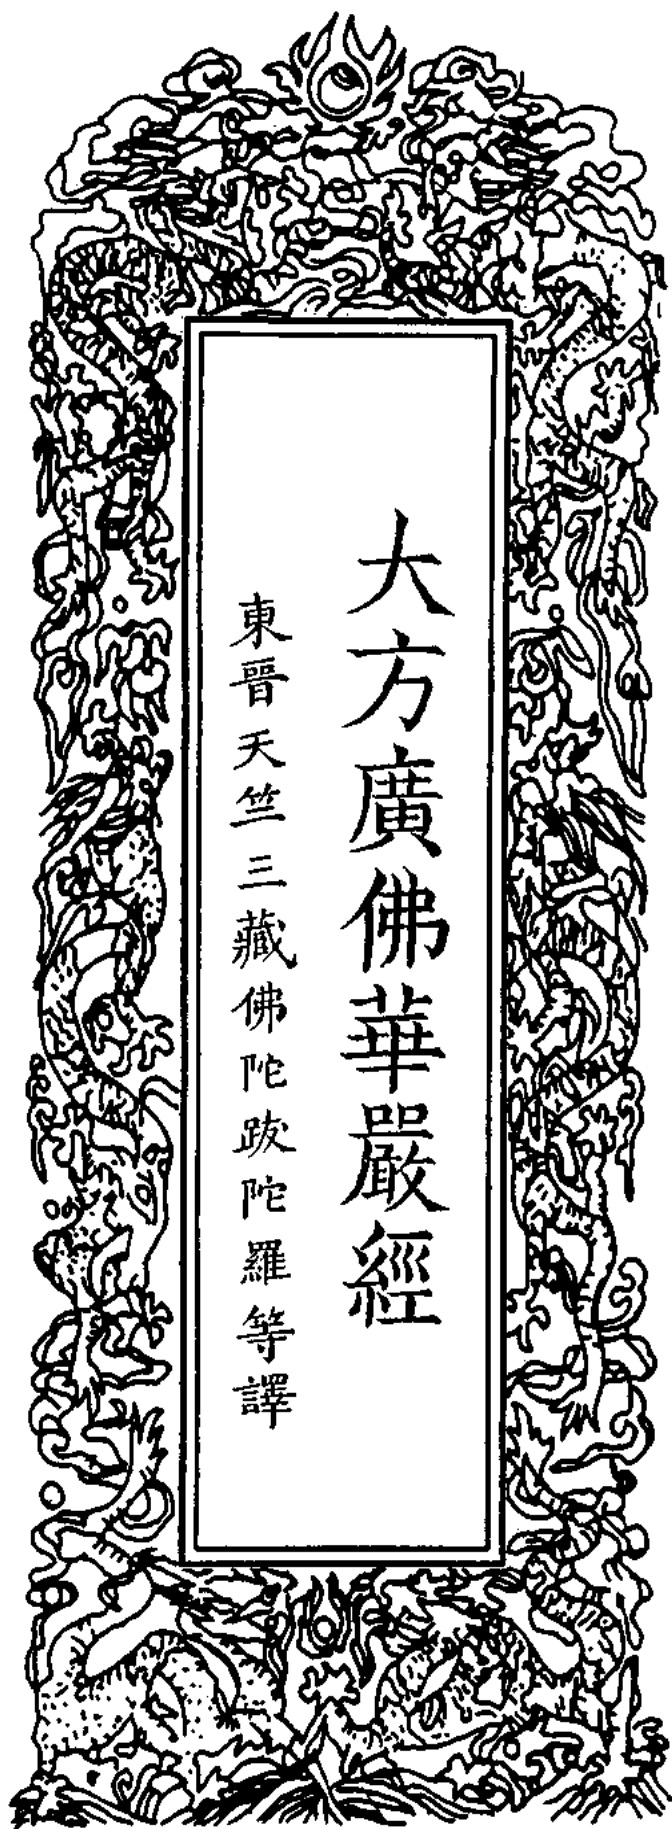 大方廣佛華嚴經
東晉天竺三藏佛陀跋陀羅等譯